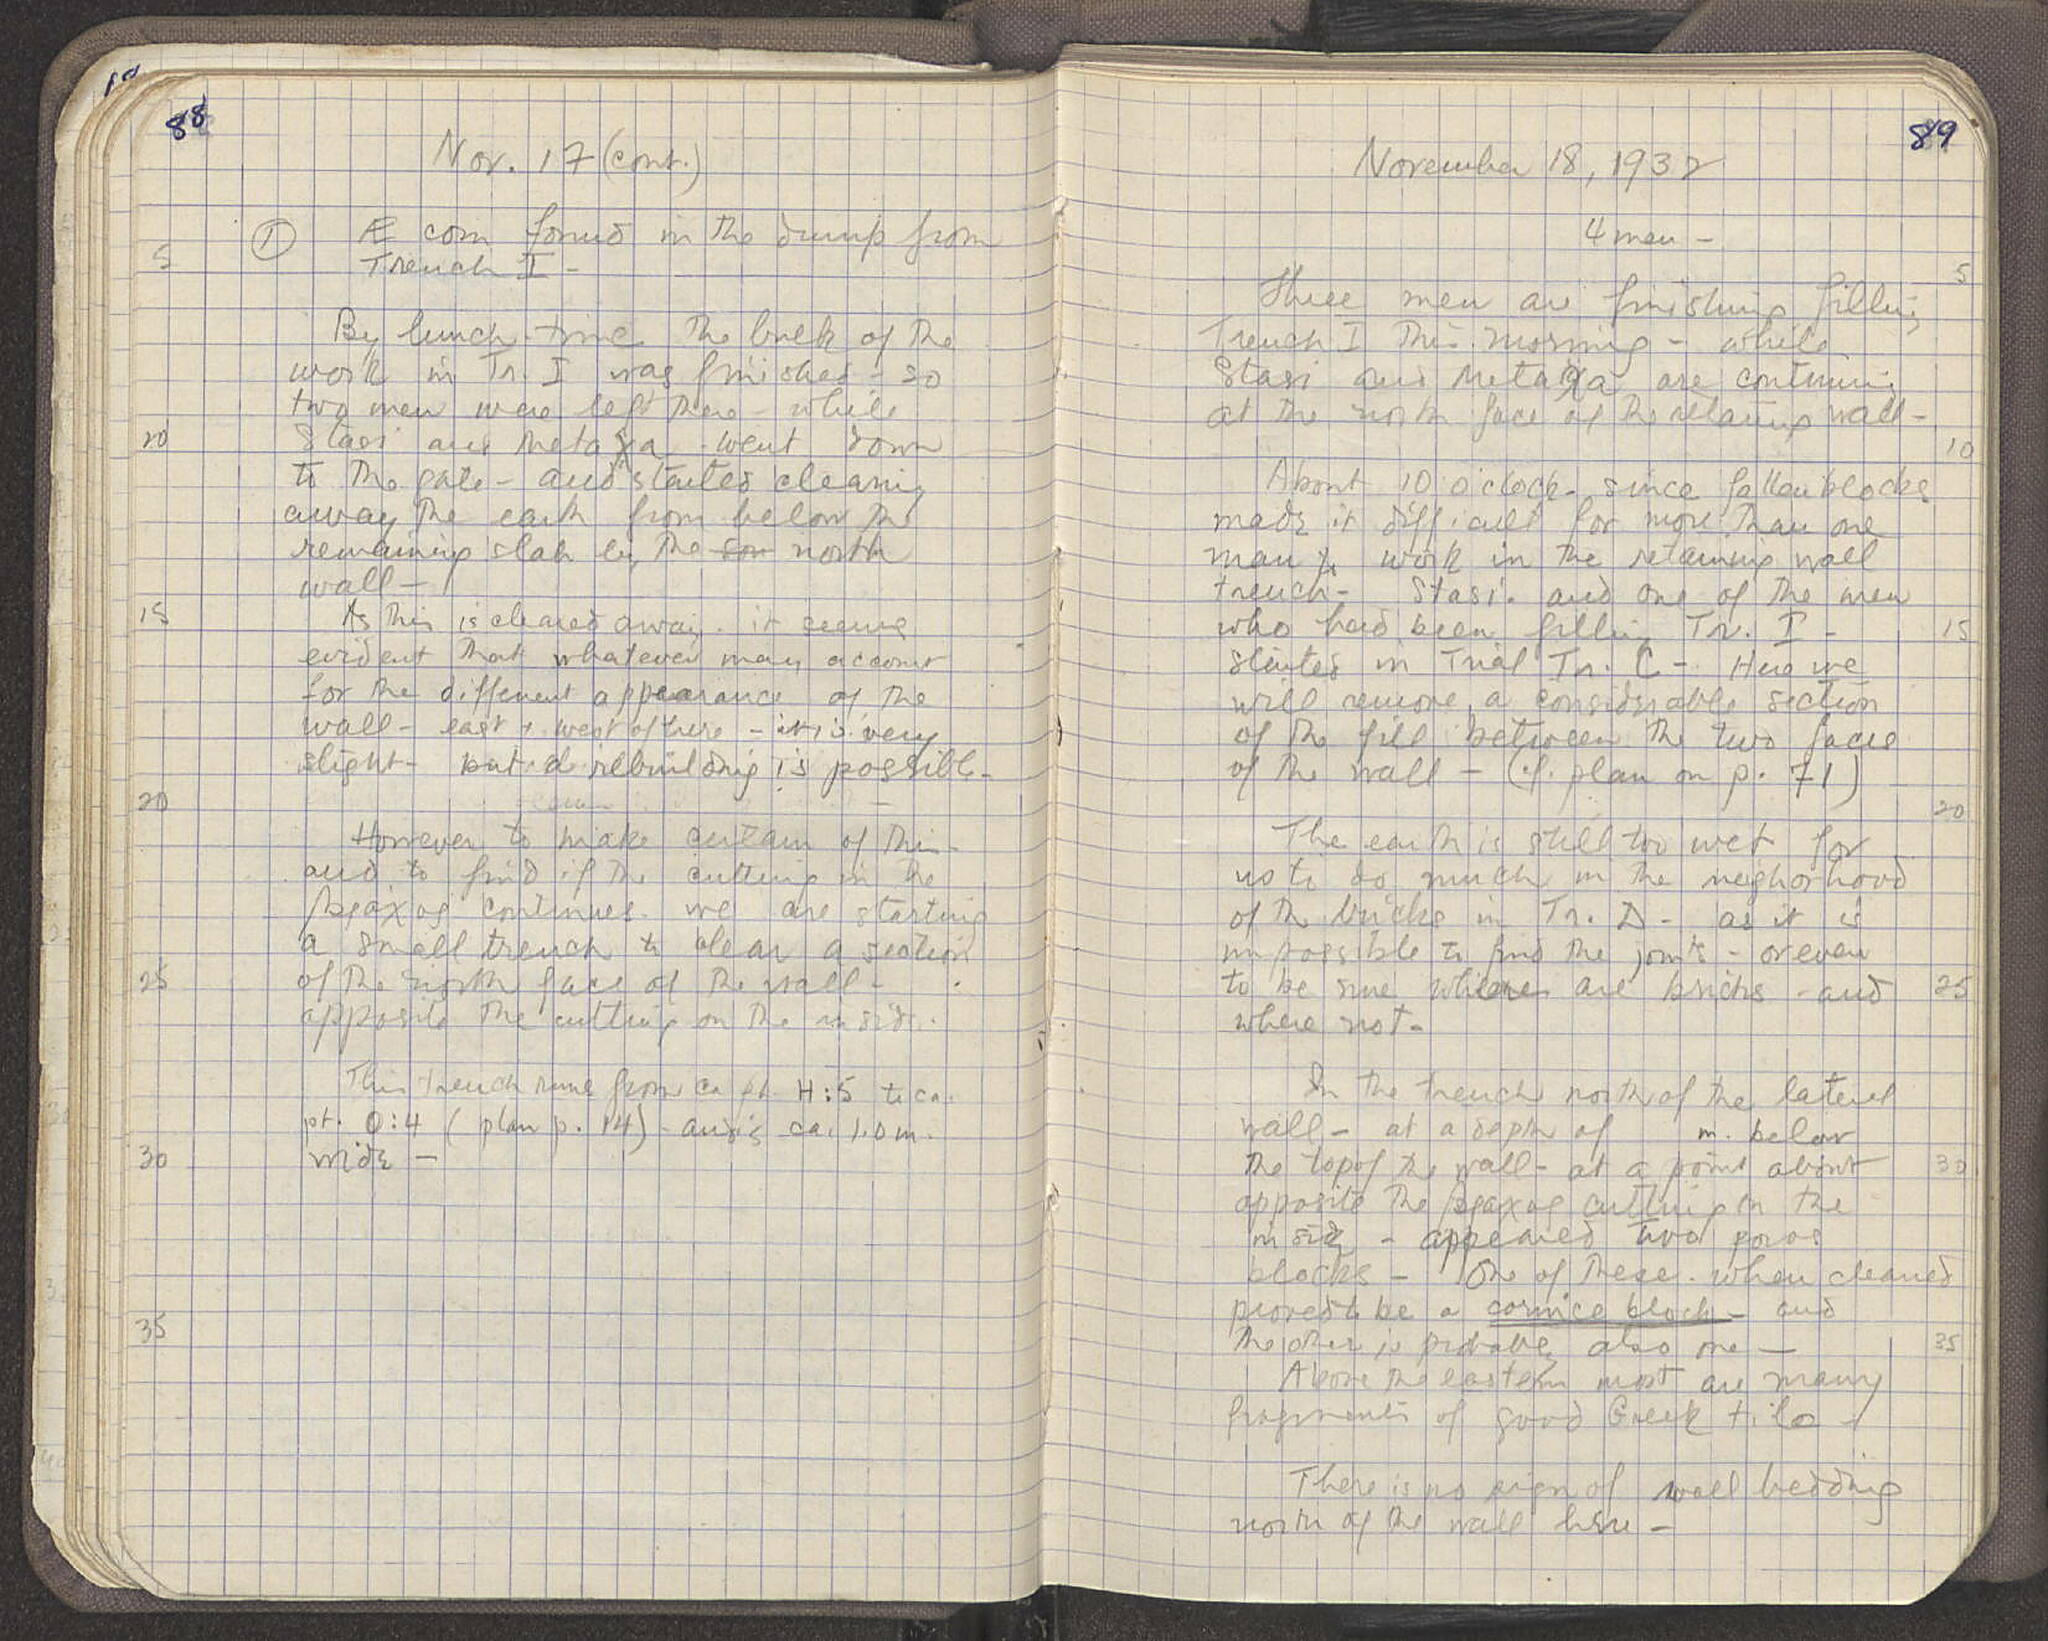 88
Nov. 17 (cont.)
5
① Æ coin found in the dump from
Trench I –
By lunch-time the bulk of the
work in Tr. I was finished – so
two men were left there – while
20
Stasi and Metaxa went down
to the gate – and started cleaning
away the earth from below the
remaining slab by the north
wall –
15
As this is cleared away – it seems
evident that whatever may account
for the different appearance of the
wall – east + west of here – it is very
slight – but a rebuilding is possible –
20
However to make certain of this –
and to find if the cutting in the
βράχος continues – we are starting
a small trench to clear a section
25
of the north face of the wall –
opposite the cutting on the inside.
This trench runs from ca pt. H:5 to ca.
pt. O:4 (plan p. 14) – and is ca. 1.0 m.
30
wide –
35
89
November 18, 1932
4 men –
5
Three men are finishing filling
Trench I this morning – while
Stasi and Metaxa are continuing
at the north face of the retaining wall –
10
About 10 o'clock – since fallen blocks
made it difficult for more than one
man to work in the retaining wall
trench – Stasi – and one of the men
15
who had been filling Tr. I –
started in Trial Tr. C – Here we
will remove a considerable section
of the fill between the two faces
of the wall – (cf. plan on p. 71)
20
The earth is still too wet for
us to do much in the neighorhood
of the bricks in Tr. D – as it is
impossible to find the joints – or even
25
to be sure where are bricks – and
where not –
In the trench north of the lateral
wall – at a depth of m. below
30
the top of the wall – at a point about
opposite the βράχος cutting on the
inside – appeared two poros
blocks – One of these – when cleaned
proved to be a cornice block – and
35
the other is probably also one –
Above the eastern most are many
fragments of good Greek tile –
There is no sign of wall bedding
north of the wall here –